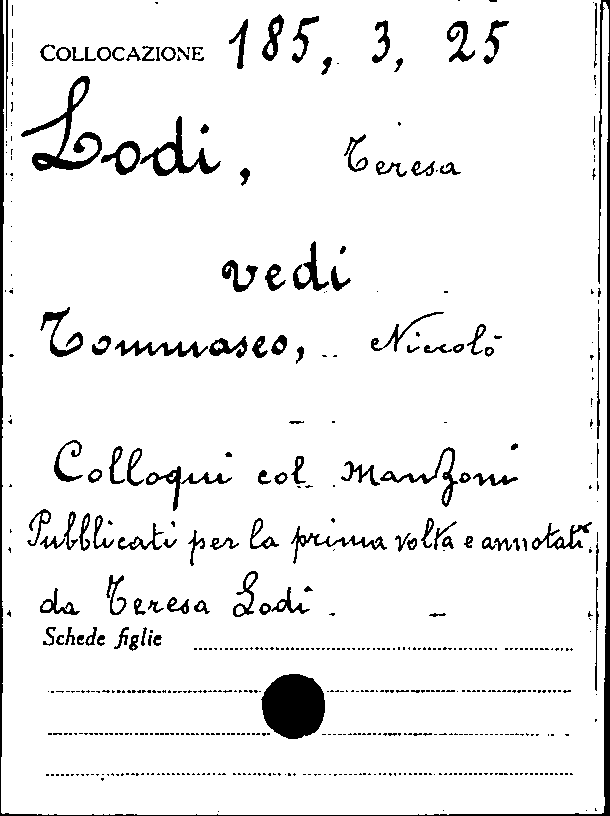 COLLOCAZIONE 185, 3, 25
Lodi, Teresa
vedi
Tommaseo, Niccolò
Colloqui col Manzoni
Pubblicati per la prima volta e annotati
da Teresa Lodi.
Schede figlie